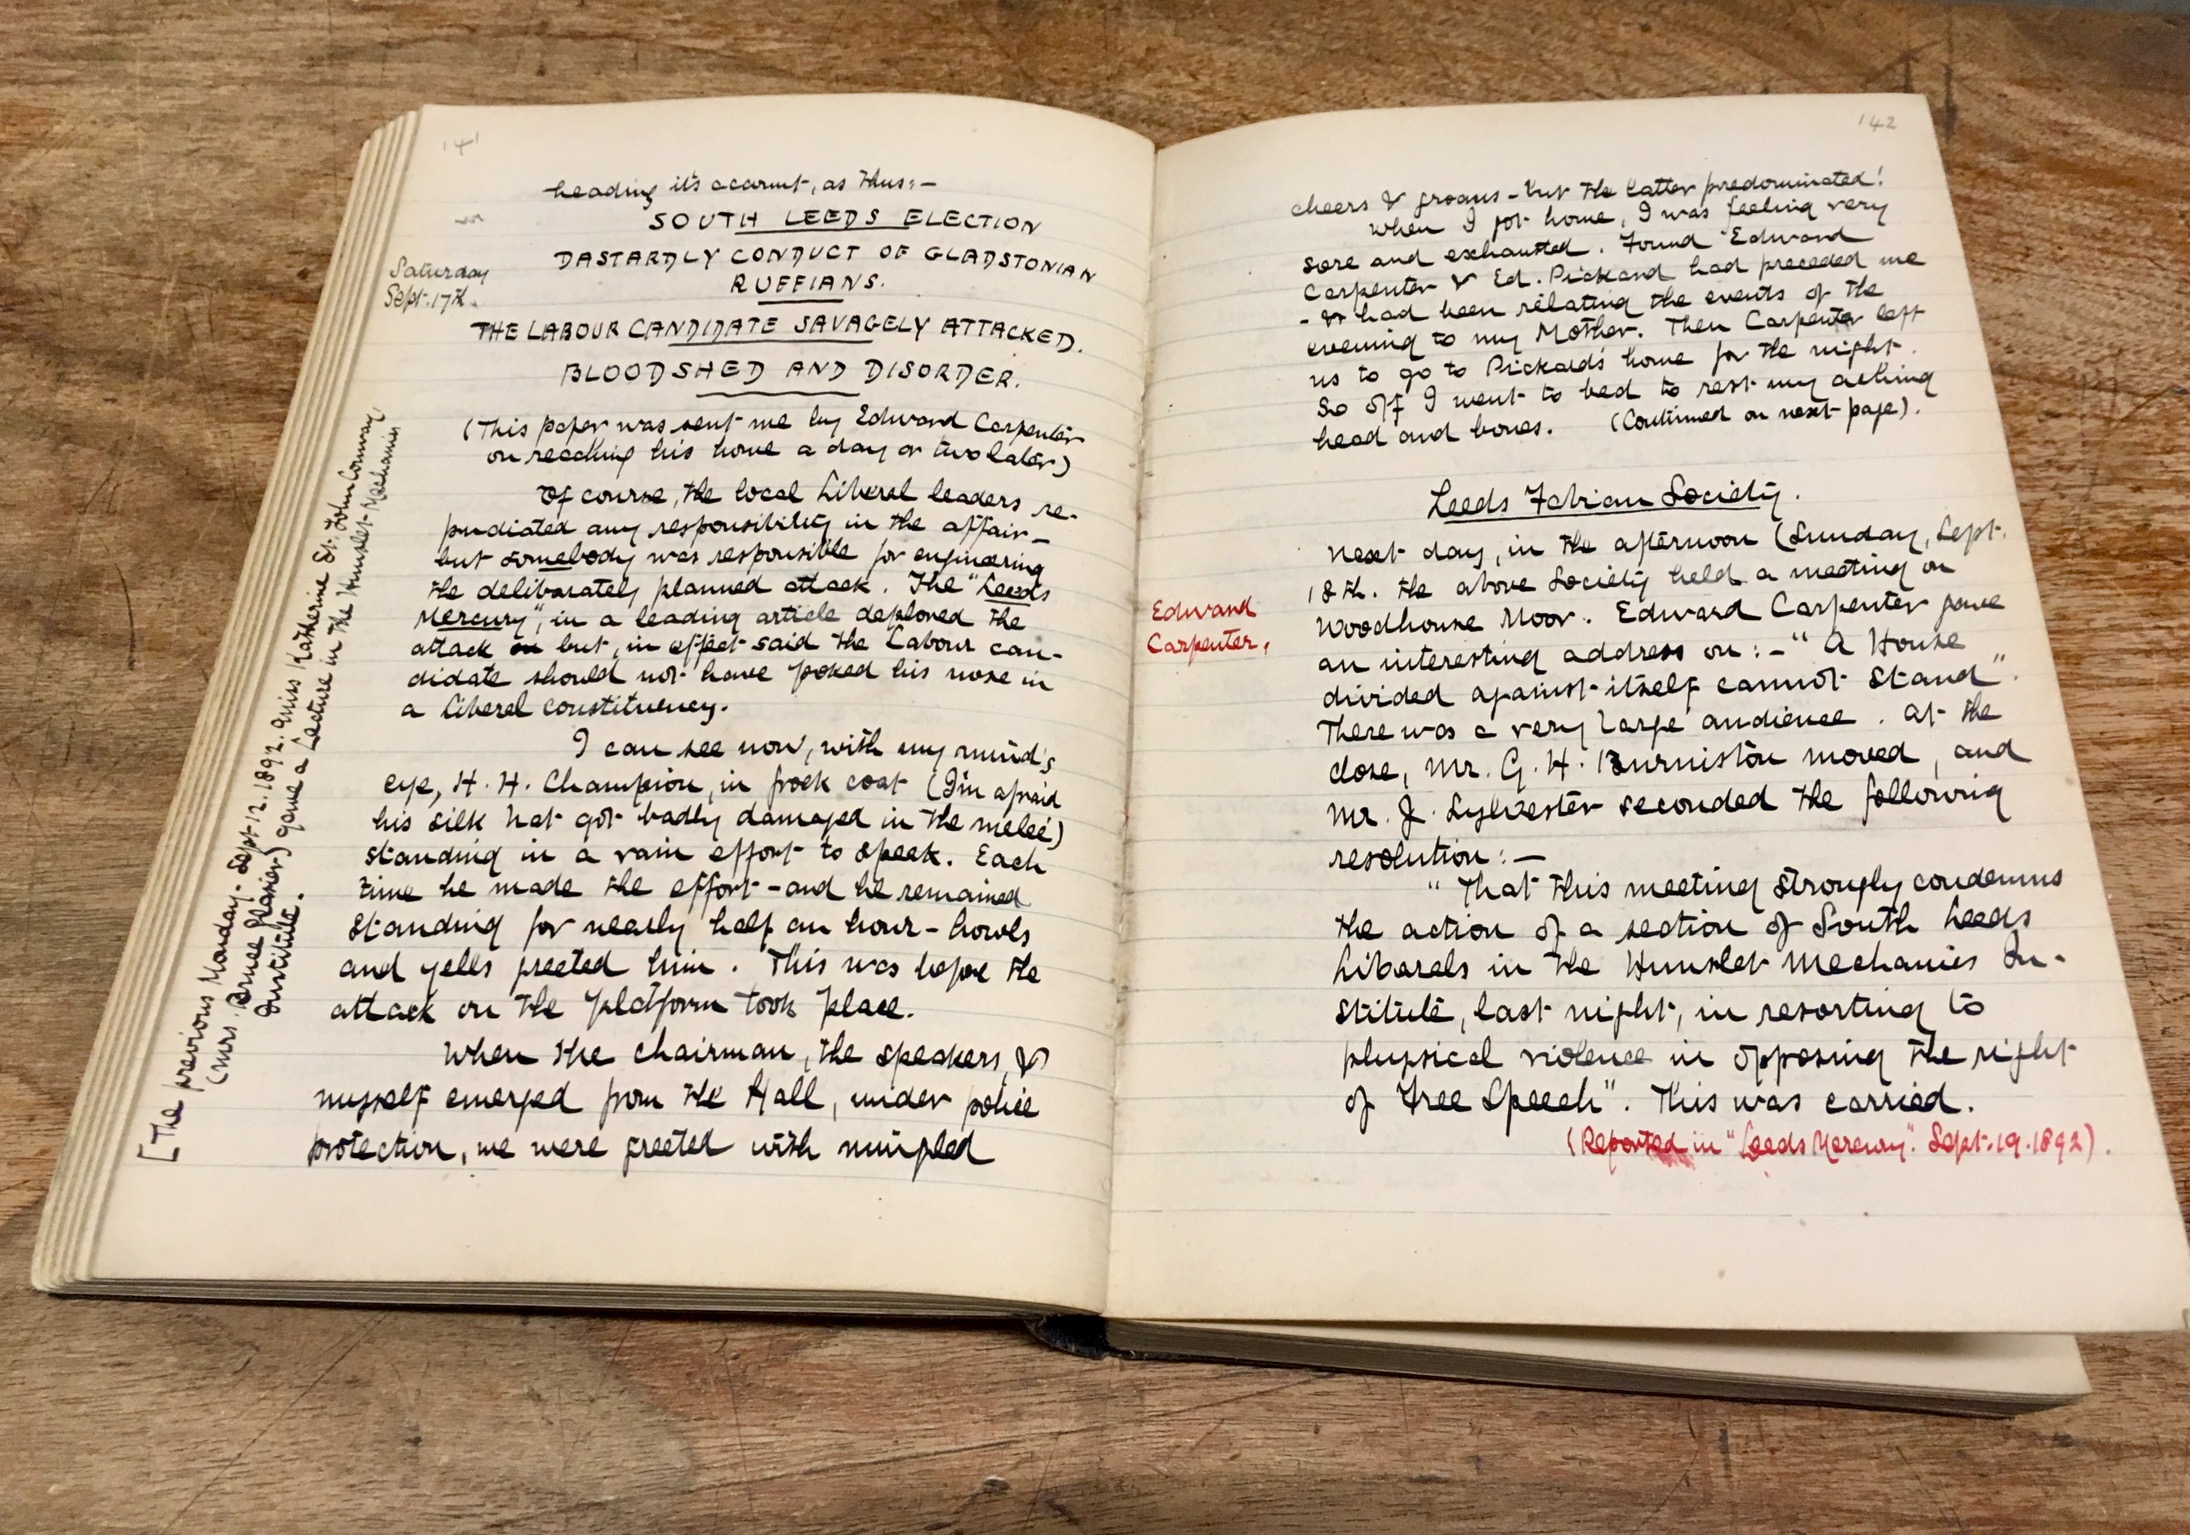 141
heading it's account, as thus:—
SOUTH LEEDS ELECTION
DASTARDLY CONDUCT OF GLADSTONIAN
RUFFIANS.
Saturday
Sept. 17th.
THE LABOUR CANDIDATE SAVAGELY ATTACKED.
BLOODSHED AND DISORDER.
(This paper was sent me by Edward Carpenter
on reaching his home a day or two later)
Of course, the local Liberal leaders re-
pudiated any responsibility in the affair—
but somebody was responsible for engineering
the deliberately planned attack. The "Leeds
Mercury", in a leading article deplored the
attack but, in effect said the Labour can-
didate should not have poked his nose in
a Liberal constituency.
I can see now, with my mind's
eye, H. H. Champion, in frock coat (I'm afraid
his silk hat got badly damaged in the melée)
standing in a vain effort to speak. Each
time he made the effort - and he remained
standing for nearly half an hour - howls
and yells greeted him. This was before the
attack on the platform took place.
When the chairman, the speakers, &
myself emerged from the Hall, under police
protection, we were greeted with mingled
[The previous Monday - Sept 12. 1892. Miss Katherine St. John Conway
(Mrs. Bruce Glasier) gave a Lecture in the Hunslet Mechanics
Institute.
142
cheers & groans - but the latter predominated!
When I got home, I was feeling very
sore and exhausted. Found Edward
Carpenter & Ed. Pickard had preceded me
- & had been relating the events of the
evening to my Mother. Then Carpenter left
us to go to Pickard's home for the night.
So off I went to bed to rest my aching
head and bones. (Continued on next page).
Leeds Fabian Society.
Next day, in the afternoon (Sunday, Sept.
18th. the above Society held a meeting on
Woodhouse Moor. Edward Carpenter gave
an interesting address on:- "A House
divided against itself cannot stand".
There was a very large audience. At the
close, Mr. G. H. Burniston moved, and
Mr. J. Sylvester seconded the following
resolution:—
"That this meeting strongly condemns
the action of a section of South Leeds
Liberals in the Hunslet Mechanics In-
stitute, last night, in resorting to
physical violence in opposing the right
of Free Speech". This was carried.
(Reported in "Leeds Mercury". Sept. 19. 1892).
Edward
Carpenter.